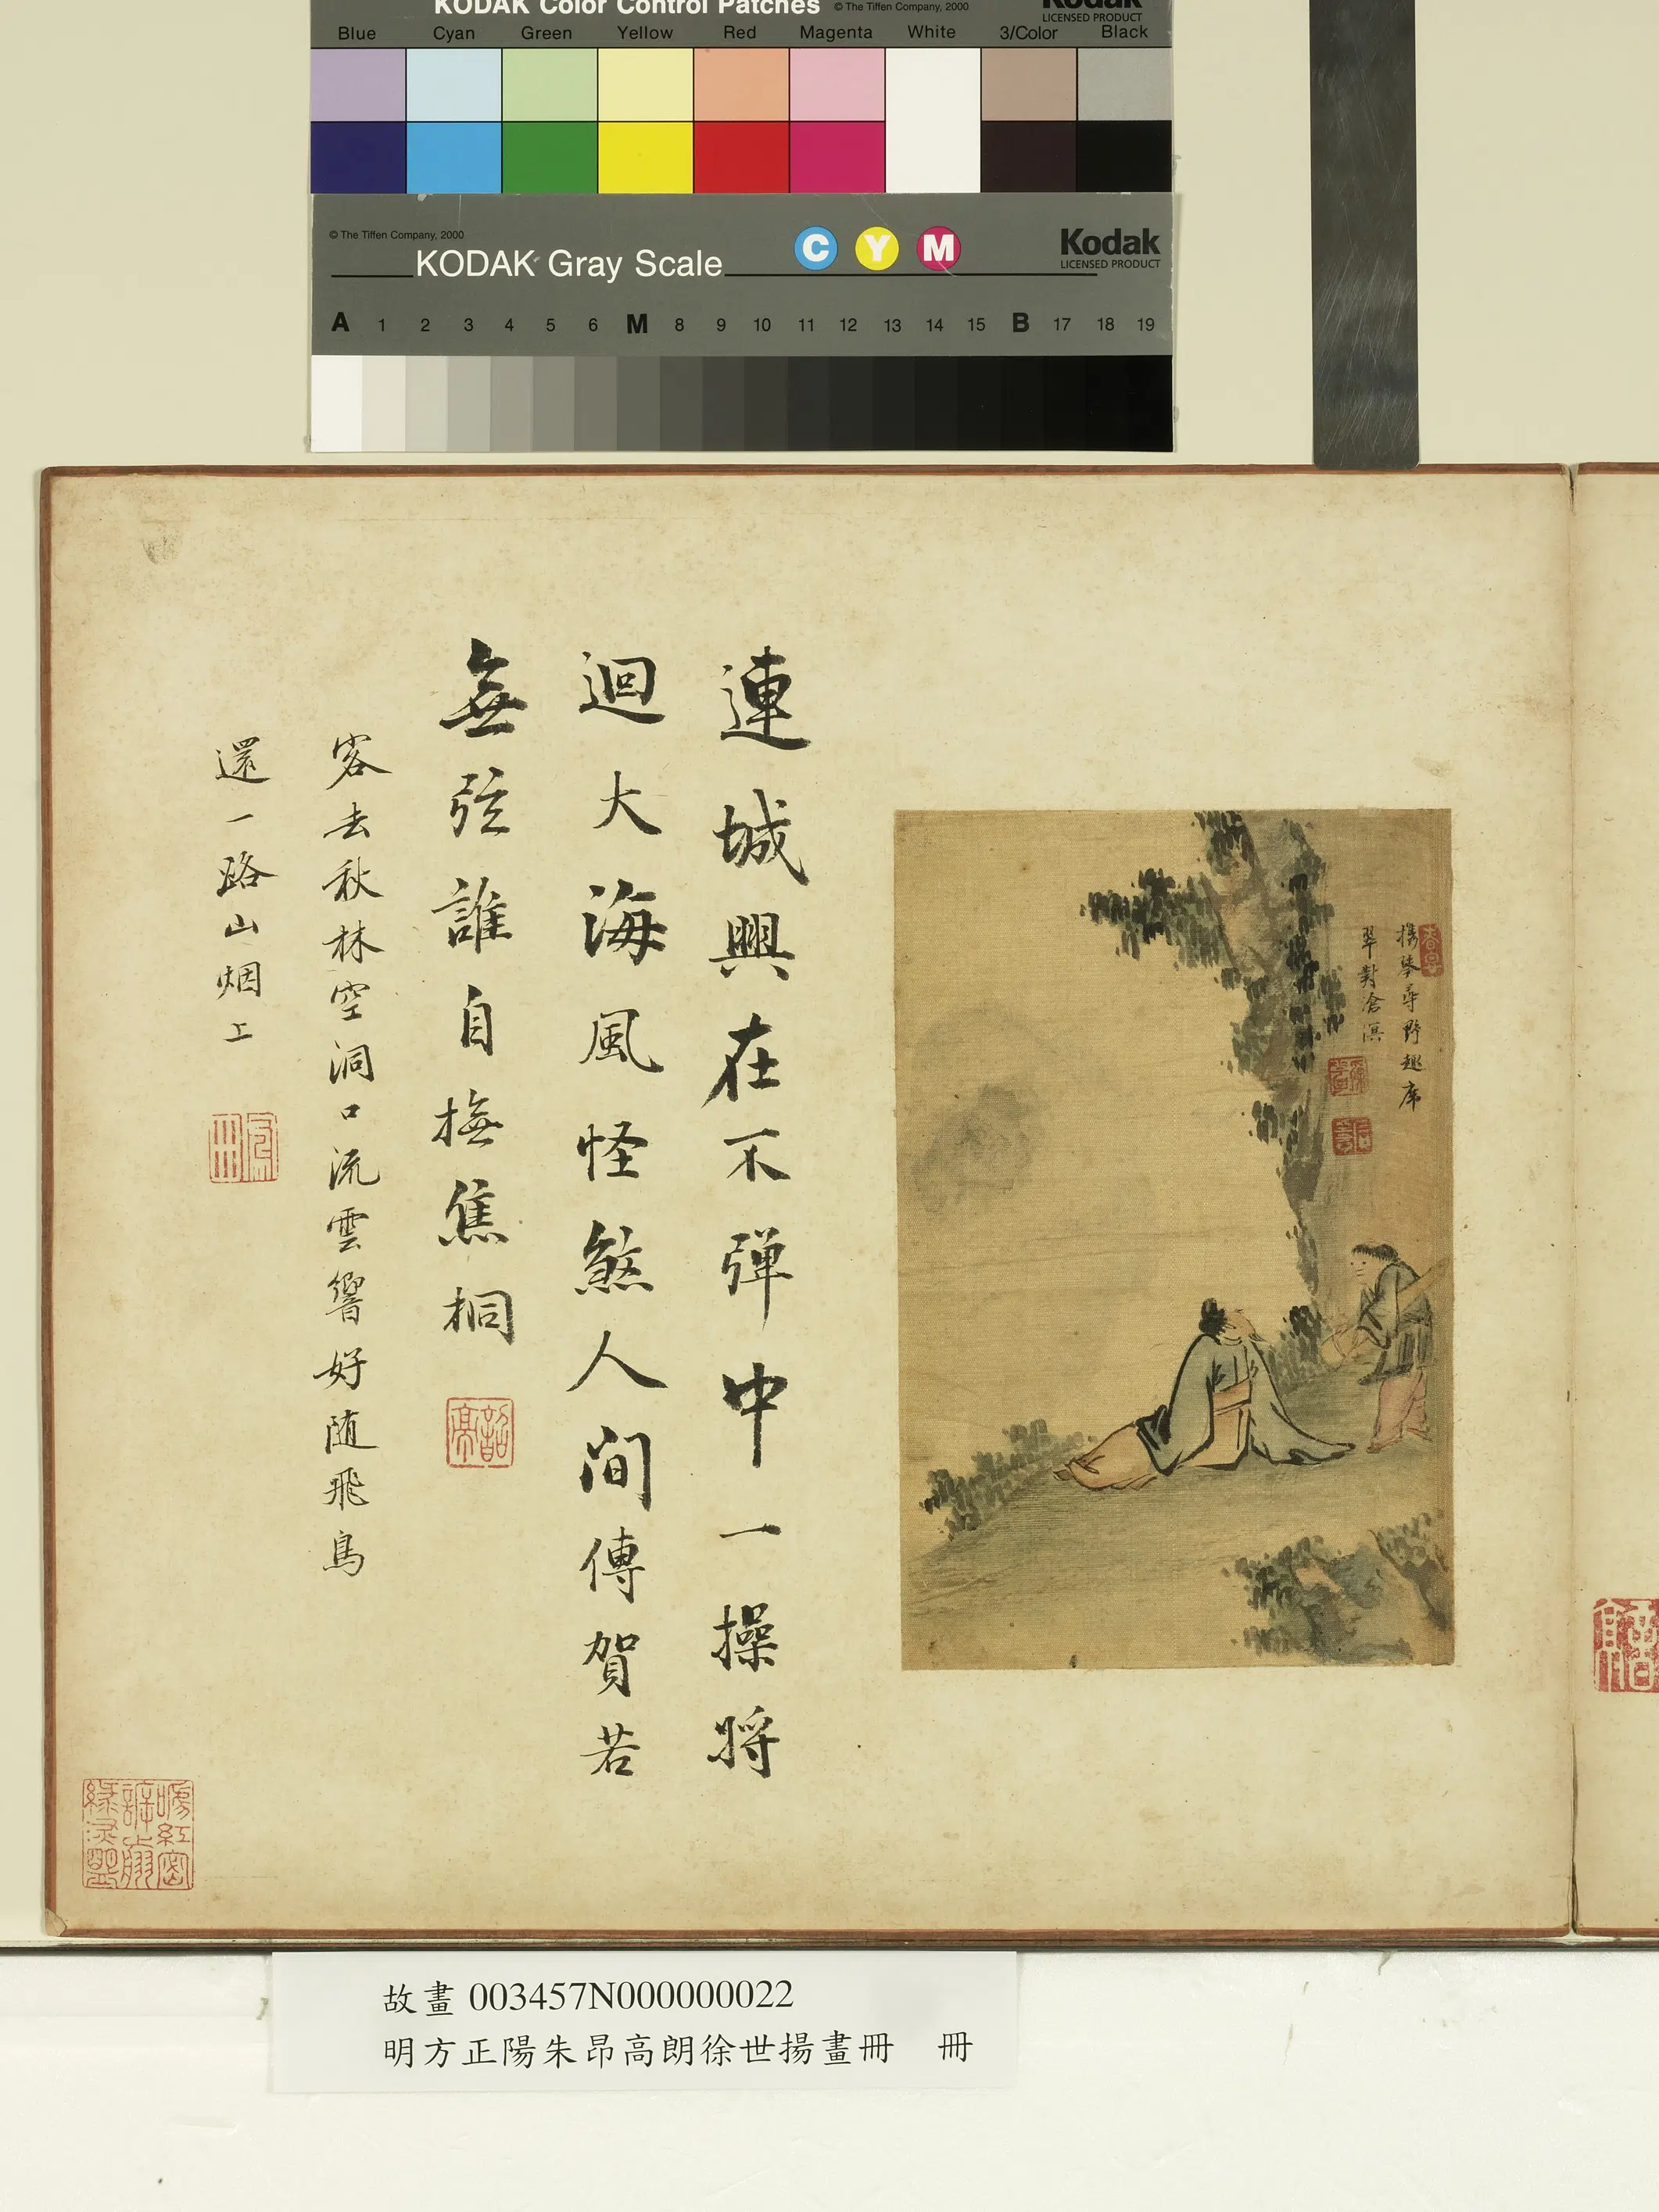 KODAK Color Control Patches © The Tiffen Company, 2000 Kodak
LICENSED PRODUCT
Blue Cyan Green Yellow Red Magenta White 3/Color Black
© The Tiffen Company, 2000
KODAK Gray Scale C Y M Kodak
LICENSED PRODUCT
A 1 2 3 4 5 6 M 8 9 10 11 12 13 14 15 B 17 18 19
攜琴尋野趣席
翠對滄溟
連城興在不彈中一操將
迴大海風怪煞人間傳賀若
無弦誰自撫焦桐
客去秋林空洞口流雲響好随飛鳥
還一路山烟上
故畫003457N000000022
明方正陽朱昂高朗徐世揚畫冊 冊